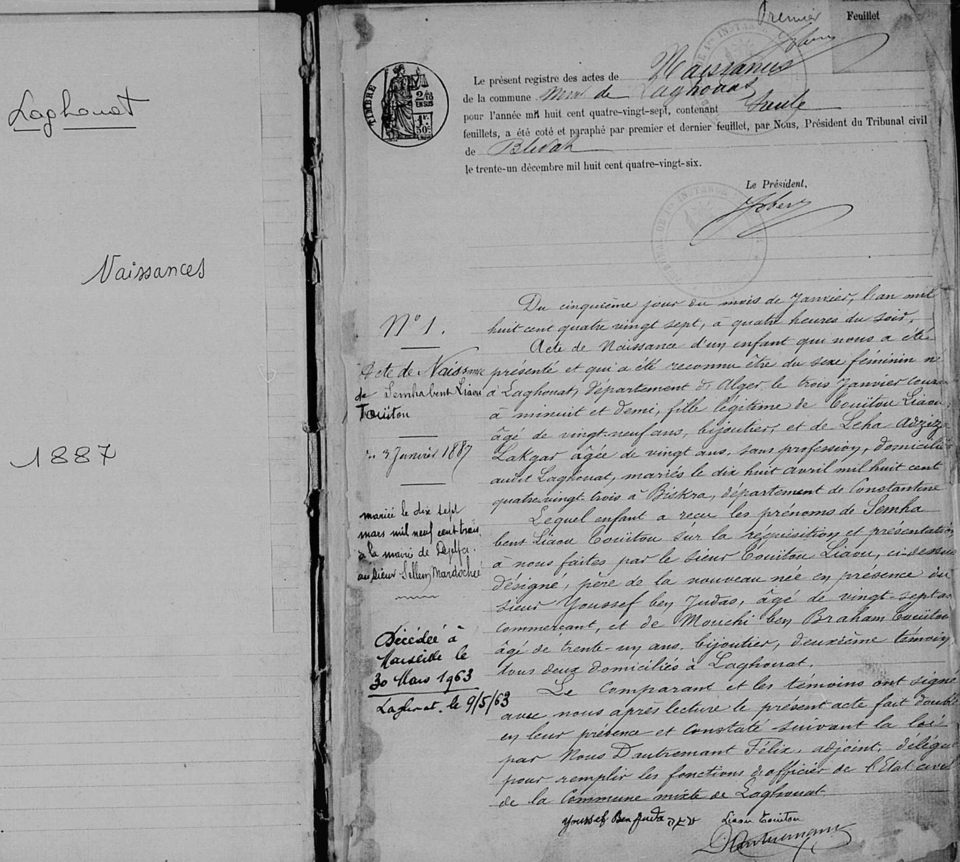 Laghouat
Naissances
1887
Premier Feuillet
TIMBRE
Le présent registre des actes de Naissances
de la commune Mixte de Laghouat
pour l'année mil huit cent quatre-vingt-sept, contenant
feuillets, a été coté et paraphé par premier et dernier feuillet, par Nous, Président du Tribunal civil
de Blidah
le trente-un décembre mil huit cent quatre-vingt-six.
Le Président,
N° 1.
Acte de Naissance
de Semha bent Liaou
Touitou
3 Janvier 1887
mariée le dix sept
mars mil neuf cent trois
à la mairie de Djelfa
au sieur Sellem Mardochée
Décédée à
Marseille le
30 Mars 1963
Laghouat, le 9/5/63
Du cinquième jour du mois de Janvier, l'an mil
huit cent quatre vingt sept, à quatre heures du soir,
Acte de Naissance d'un enfant qui nous a été
présenté et qui a été reconnu être du sexe féminin né
à Laghouat, département d'Alger le trois Janvier
à minuit et demi, fille légitime de Touitou Liaou,
âgé de vingt-neuf ans, bijoutier, et de Leha
Lakgar âgée de vingt ans, sans profession, domiciliés
audit Laghouat, mariés le dix huit avril mil huit cent
quatre vingt trois à Biskra, département de Constantine
Lequel enfant a reçu les prénoms de Semha
bent Liaou Touitou sur la réquisition et présentation
à nous faites par le sieur Touitou Liaou, ci-dessus
désigné, père de la nouveau née en présence du
sieur Youssef ben Judas, âgé de vingt sept ans
commerçant, et de Mouchi ben Braham Touitou
âgé de trente-un ans, bijoutier, deuxième témoin,
tous deux domiciliés à Laghouat.
Le Comparant et les témoins ont signé
avec nous après lecture le présent acte fait double
en leur présence et constaté suivant la loi
par Nous Dautremant Félix, adjoint, délégué
pour remplir les fonctions d'officier de l'Etat civil
de la Commune mixte de Laghouat
Youssef Ben Juda Liaou Touitou